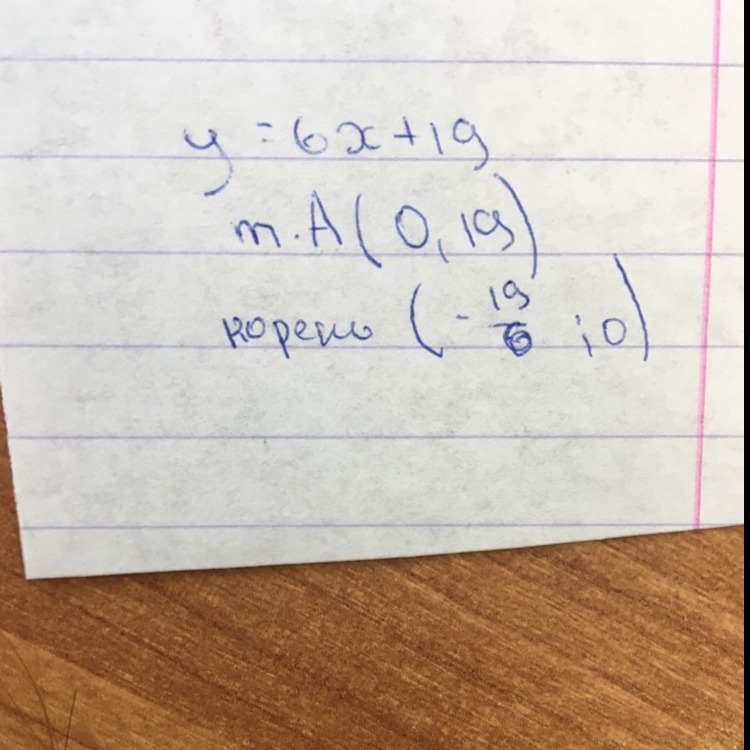 y = 6x + 19
т. A (0, 19)
корень (- 19/6 ; 0)